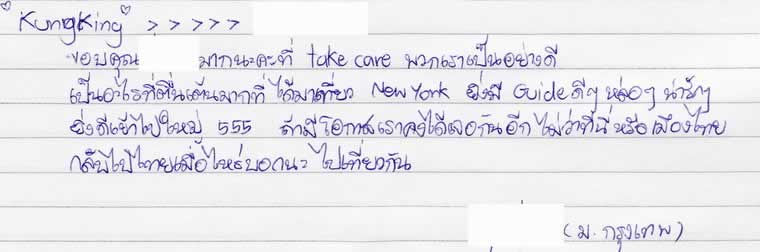 KungKing > > > > >
ขอบคุณ มากนะคะที่ take care พวกเราเป็นอย่างดี
เป็นอะไรที่ตื่นเต้นมากที่ได้มาเที่ยว New York ยิ่งมี Guide ดีๆ หล่อๆ น่ารักๆ
ยิ่งดีเข้าไปใหญ่ 555 ถ้ามีโอกาสเราคงได้เจอกันอีก ไม่ว่าที่นี่ หรือ เมืองไทย
กลับไปไทยเมื่อไหร่บอกนะ ไปเที่ยวกัน
(ม. กรุงเทพ)